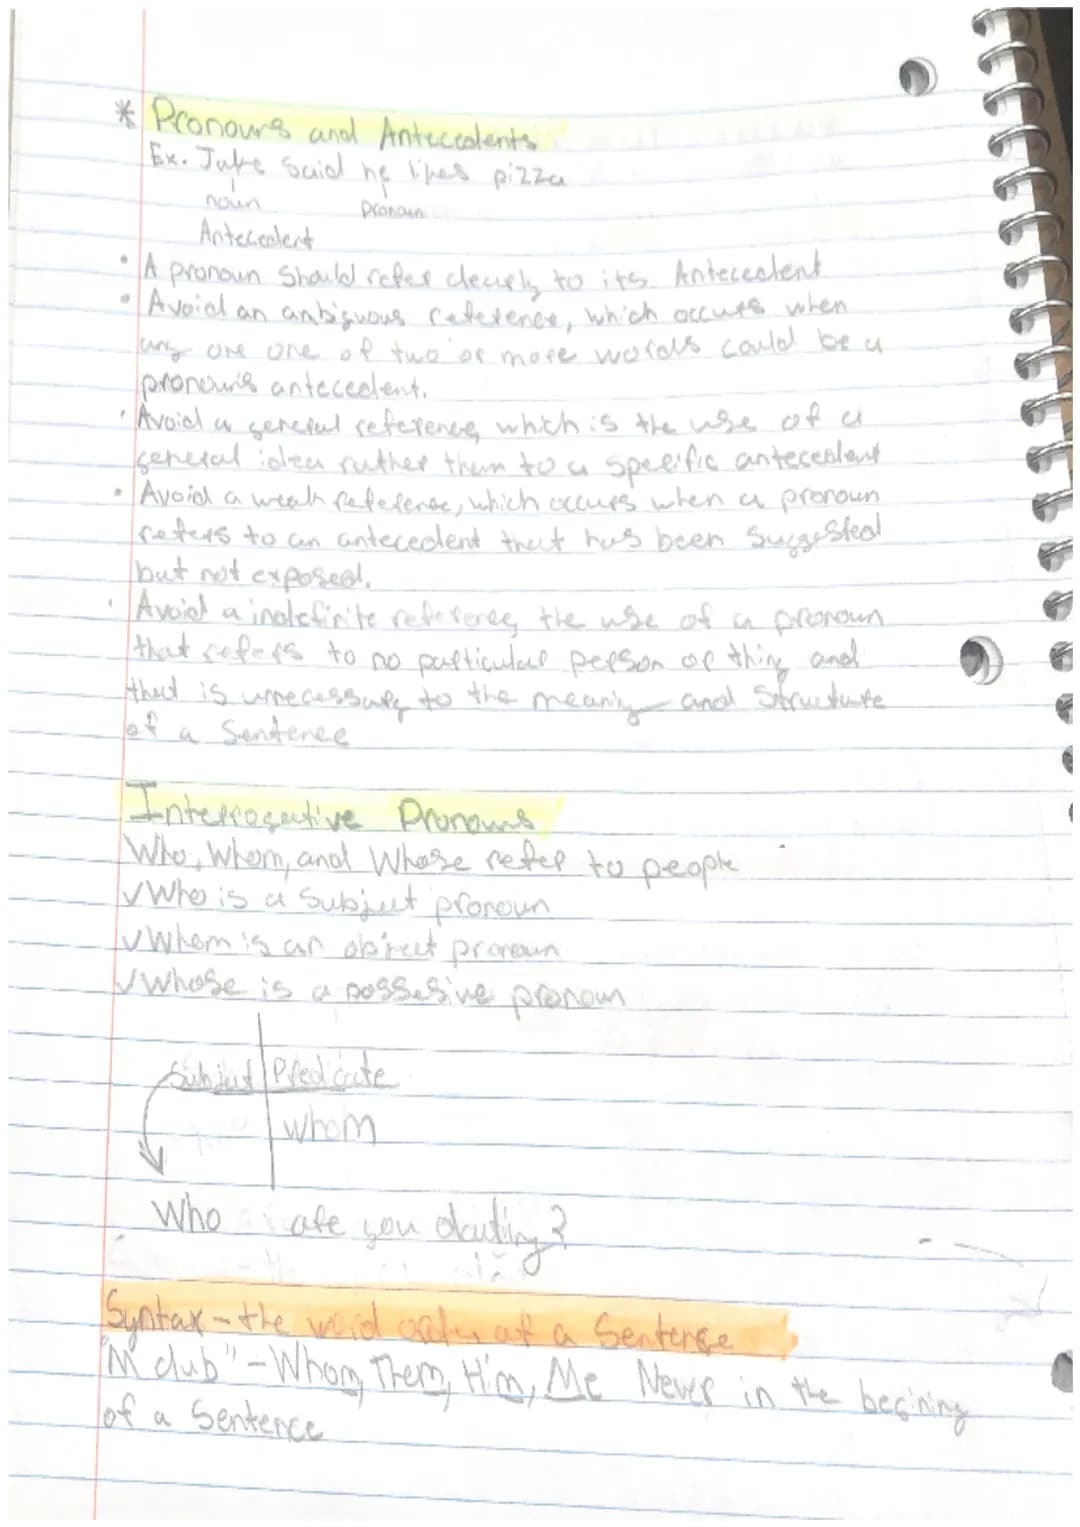 * Pronouns and Antecedents
Ex. Jake Said he likes pizza
noun pronoun
Antecedent
• A pronoun Should refer clearly to its Antecedent
• Avoid an ambiguous reference, which occurs when
any one one of two or more words could be a
pronoun's antecedent.
• Avoid a general reference, which is the use of a
general idea rather than to a specific antecedent
• Avoid a weak reference, which occurs when a pronoun
refers to an antecedent that has been Suggested
but not exposed.
• Avoid a indefinite reference, the use of a pronoun
that refers to no particular person or thing and
that is unnecessary to the meaning and Structure
of a Sentence
Interrogative Pronouns
Who, Whom, and Whose refer to people
✓Who is a Subject pronoun
✓Whom is an object pronoun
✓Whose is a possesive pronoun
Subject | Predicate
whom
Who are you dating?
Syntax - the word order of a Sentence
"M club" - Whom, Them, Him, Me Never in the begining
of a Sentence